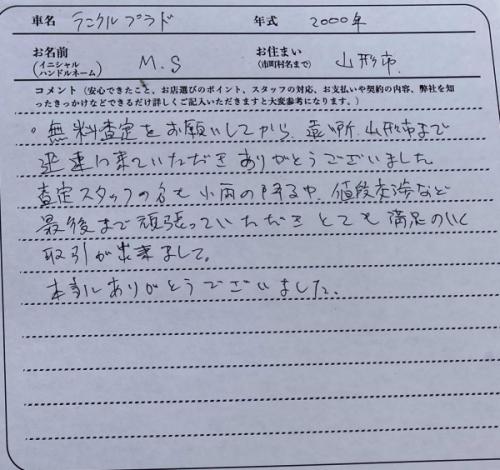 車名 ランクルプラド 年式 2000年
お名前(イニシャル ハンドルネーム) M.S お住まい(市町村名まで) 山形市
コメント(安心できたこと、お店選びのポイント、スタッフの対応、お支払いや契約の内容、弊社を知
ったきっかけなどできるだけ詳しくご記入いただきますと大変参考になります。)
。無料査定をお願いしてから、遠い所、山形市まで
迅速に来ていただきありがとうございました
査定スタッフの名も小雨の降る中、値段交渉など
最後まで頑張っていただきとても満足のいく
取引が出来まして。
本当にありがとうございました。